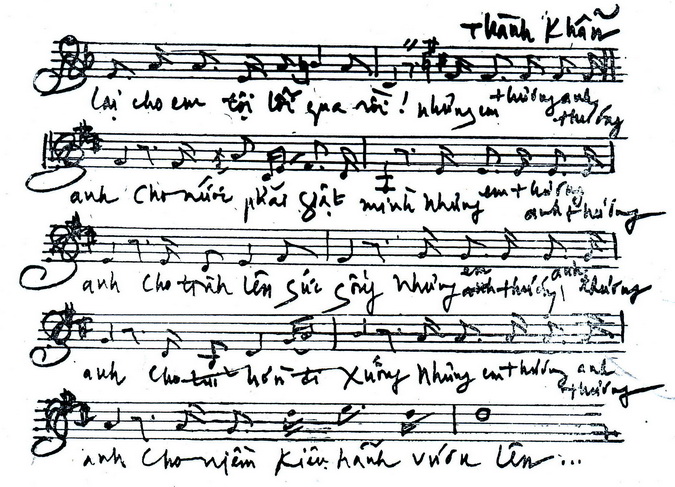 Thành Khẩn
lại cho em tội lỗi qua rồi! Nhưng em thương anh thương
anh Cho nước phải giật mình Nhưng em thương anh thương
anh Cho tình lên sức sống Nhưng em thương anh thương
anh Cho tủi hờn đi xuống Nhưng em thương anh thương
anh Cho niềm kiêu hãnh vươn lên...